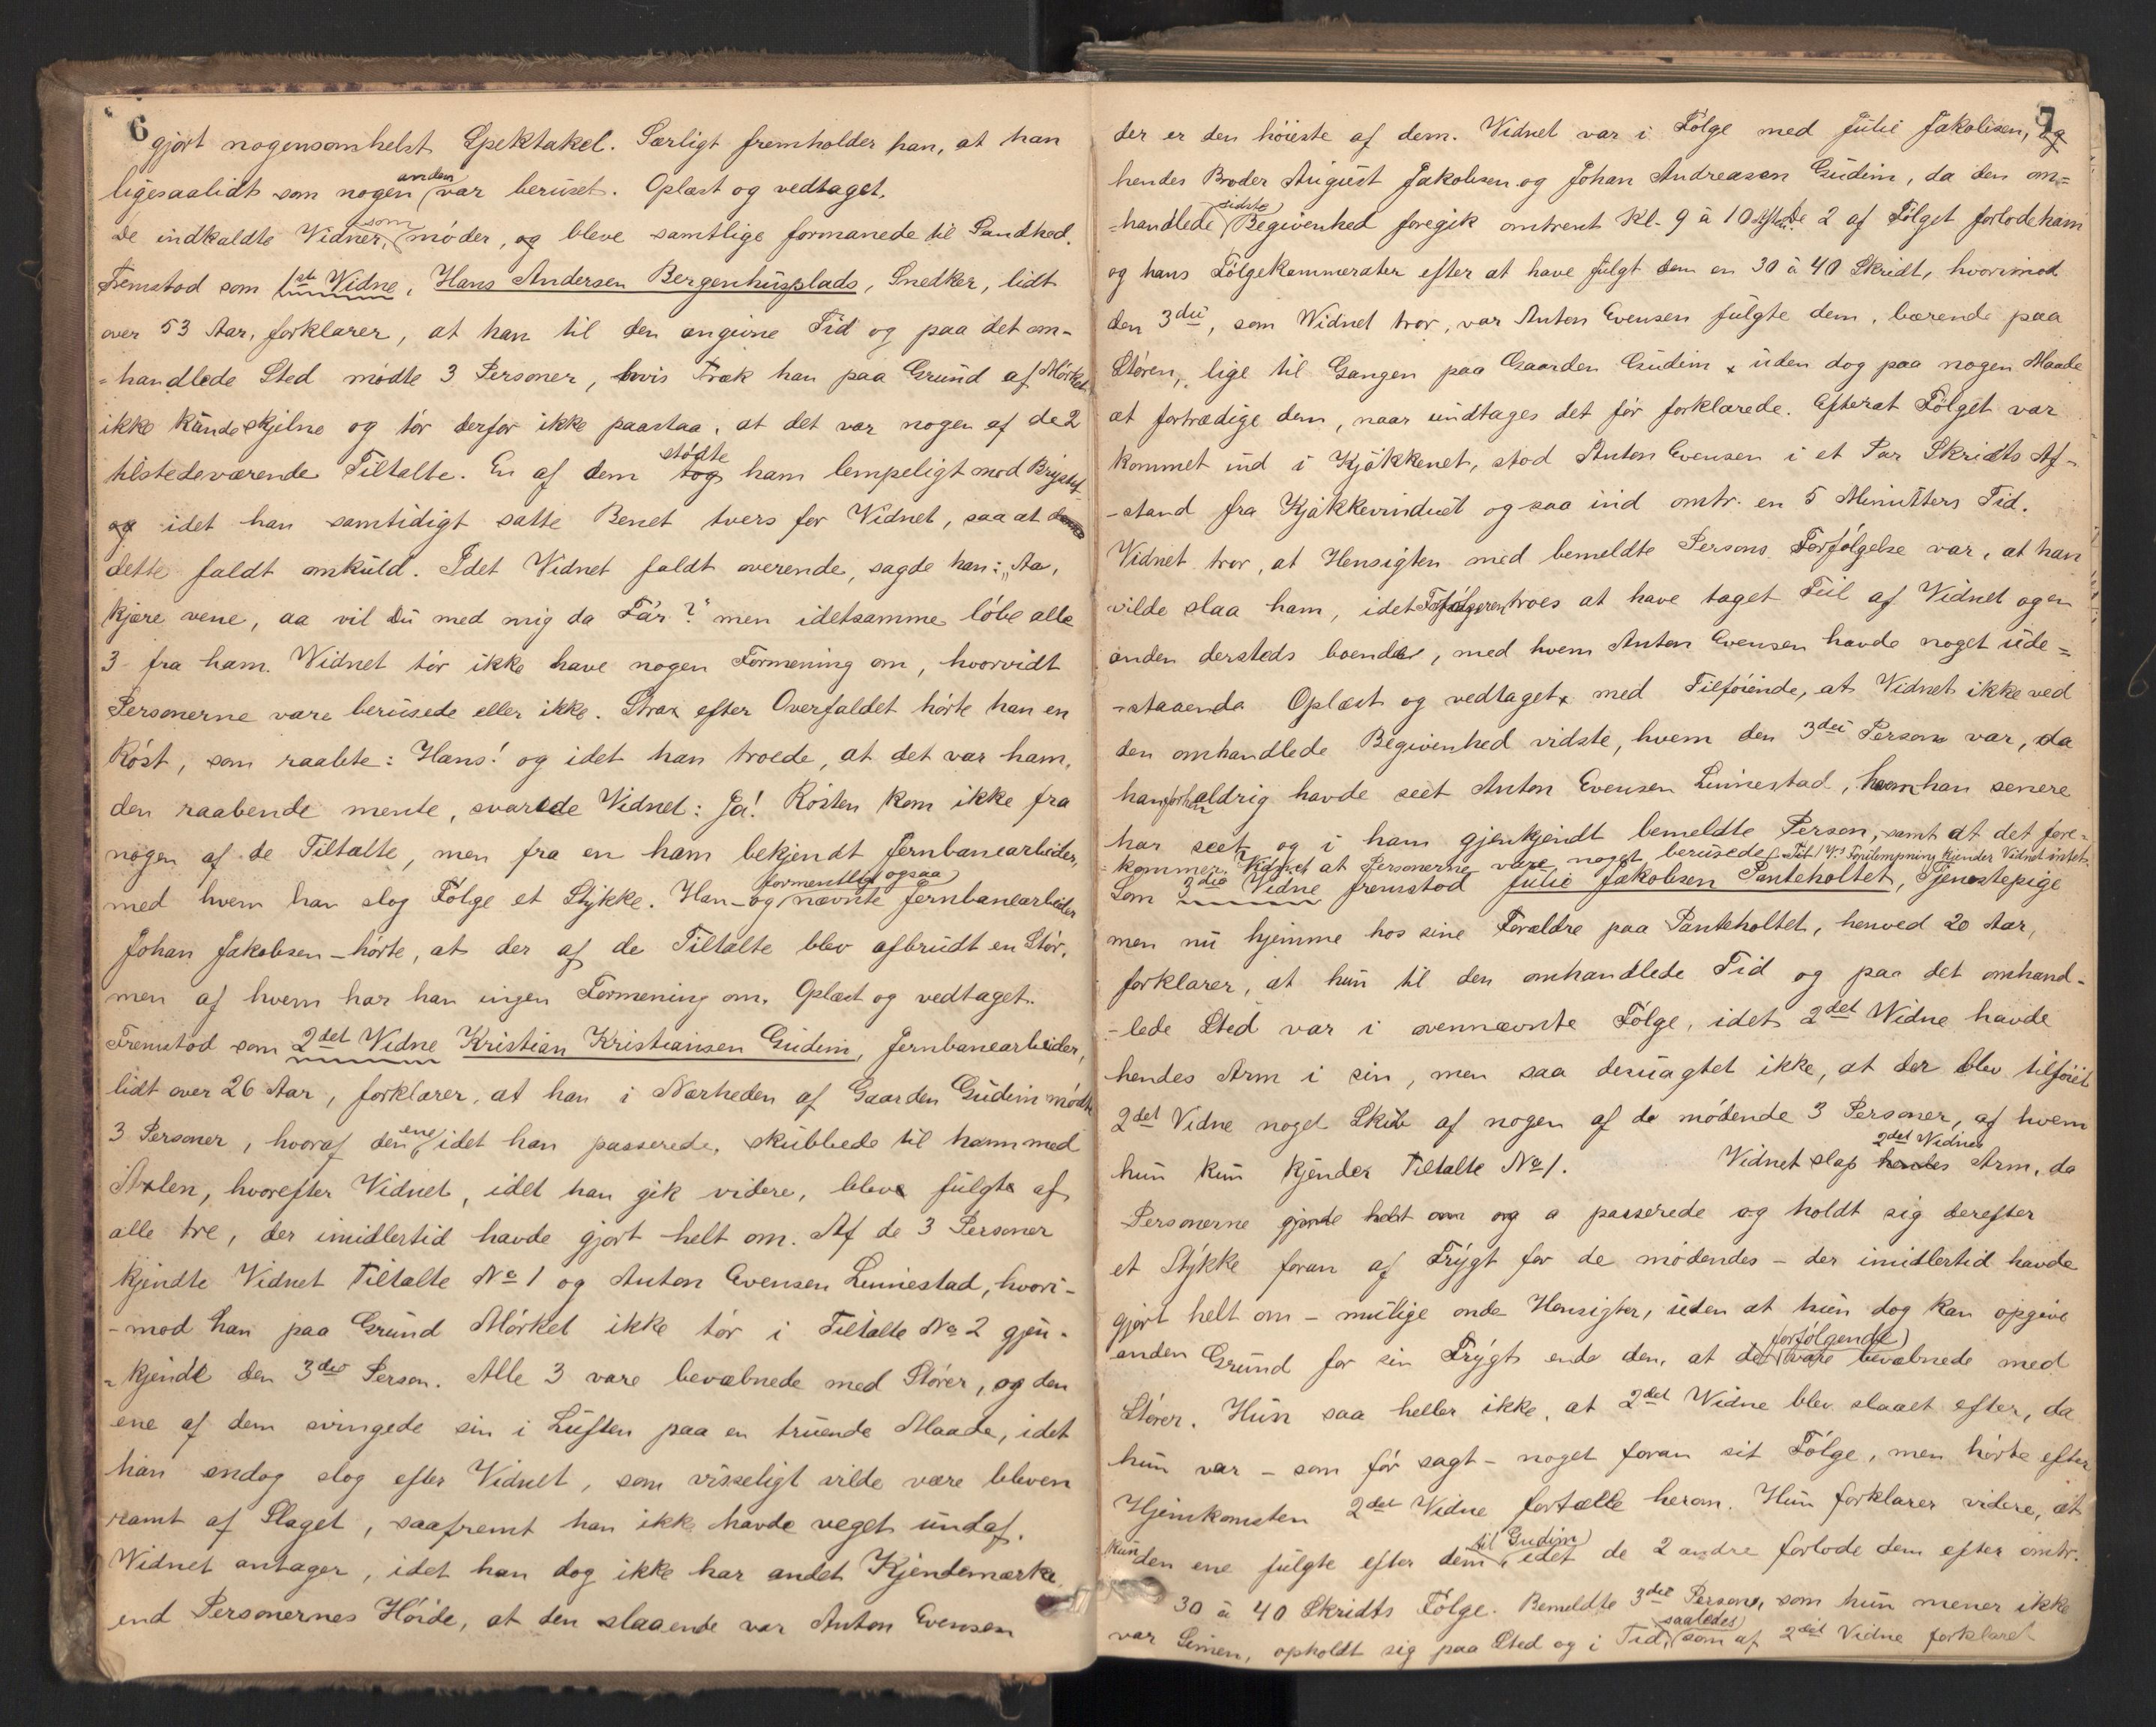 6
gjort nogensomhelst Spektakel. Særligt fremholder han, at han
ligesaalidt som nogen anden var beruset. Oplæst og vedtaget.
De indkaldte Vidner, som møder, og bleve samtlige formanede til Sandhed.
Fremstod som 1ste Vidne, Hans Andersen Bergenhusplads, Snedker, lidt
over 53 Aar, forklarer, at han til den angivne Tid og paa det om-
=handlede Sted mødte 3 Personer, hvis Træk han paa Grund af Mørket
ikke kunde skjelne og tør derfor ikke paastaa, at det var nogen af de 2
tilstedeværende Tiltalte. En af dem tog stødte ham lempeligt mod Brystet
og idet han samtidigt satte Benet tvers for Vidnet, saa at
dette faldt omkuld. Idet Vidnet faldt overende, sagde han: "Aa,
kjære vene, aa vil Du med mig da Får?" men idetsamme løbe alle
3 fra ham. Vidnet tør ikke have nogen Formening om, hvorvidt
Personerne vare berusede eller ikke. Strax efter Overfaldet hørte han en
Røst, som raabte: Hans! og idet han troede, at det var ham,
den raabende mente, svarede Vidnet: Ja! Røsten kom ikke fra
nogen af de Tiltalte, men fra en ham bekjendt Jernbanearbeider,
med hvem han slog Følge et Stykke. Han - og formentlig ogsaa nævnte Jernbanearbeider
Johan Jakobsen - hørte, at der af de Tiltalte blev afbrudt en Stør,
men af hvem har han ingen Formening om. Oplæst og vedtaget.
Fremstod som 2det Vidne Kristian Kristiansen Gudim, Jernbanearbeider,
lidt over 26 Aar, forklarer, at han i Nærheden af Gaarden Gudim mødte
3 Personer, hvoraf den ene, idet han passerede, skubbede til ham med
Axlen, hvorefter Vidnet, idet han gik videre, bleve fulgte af
alle tre, der imidlertid havde gjort helt om. Af de 3 Personer
kjendte Vidnet Tiltalte No 1 og Anton Evensen Linnestad, hvori-
-mod han paa Grund Mørket ikke tør i Tiltalte No 2 gjen-
=kjende den 3die Person. Alle 3 vare bevæbnede med Stører, og den
ene af dem svingede sin i Luften paa en truende Maade, idet
han endog slog efter Vidnet, som visseligt vilde være bleven
ramt af Slaget, saafremt han ikke havde veget undaf.
Vidnet antager, idet han dog ikke har andet Kjendemærke
end Personernes Høide, at den slaaende var Anton Evensen
7
der er den høieste af dem. Vidnet var i Følge med Julie Jakobsen, og
hendes Broder August Jakobsen og Johan Andreasen Gudim, da den om=
=handlede sidste Begivenhed foregik omtrent Kl. 9 à 10 Aften. De 2 af Følget forlode ham
og hans Følgekammerater efter at have fulgt dem en 30 à 40 Skridt, hvorimod
den 3die, som Vidnet tror, var Anton Evensen fulgte dem, bærende paa
Støren, lige til Gangen paa Gaarden Gudim, uden dog paa nogen Maade
at fortrædige dem, naar undtages det før forklarede. Efterat Følget var
kommet ind i Kjøkkenet, stod Anton Evensen i et Par Skridts Af-
-stand fra Kjøkkenvinduet og saa ind omtr. en 5 Minutters Tid.
Vidnet tror, at Hensigten med bemeldte Persons Forfølgelse var, at han
vilde slaa ham, idet Forfølgeren troes at have taget Feil af Vidnet og en
anden dersteds boende, med hvem Anton Evensen havde noget ude=
=staaende. Oplæst og vedtaget, med Tilføiende, at Vidnet ikke ved
den omhandlede Begivenhed vidste, hvem den 3die Person var, da
han forhen aldrig havde seet Anton Evensen Linnestad, hvem han senere
har seet og i ham gjenkjendt bemeldte Person, samt at det fore-
=kommer Vidnet at Personerne vare noget berusede. Til 1 V.s Forulempning kjender Vidnet intet.
Som 3die Vidne fremstod Julie Jakobsen Panteholtet, Tjenestepige
men nu hjemme hos sine Forældre paa Panteholtet, henved 20 Aar,
forklarer, at hun til den omhandlede Tid og paa det omhand-
-lede Sted var i ovennævnte Følge, idet 2det Vidne havde
hendes Arm i sin, men saa desuagtet ikke, at der blev tilføiet
2det Vidne noget Skub af nogen af de mødende 3 Personer, af hvem
hun kun kjender Tiltalte No 1. Vidnet slap hendes 2det Vidnes Arm, da
Personerne gjorde helt om og a passerede og holdt sig derefter
et Stykke foran af Frygt for de mødendes - der imidlertid havde
gjort helt om - mulige onde Hensigter, uden at hun dog kan opgive
anden Grund for sin Frygt end den, at de forfølgende vare bevæbnede med
Stører. Hun saa heller ikke, at 2det Vidne blev slaaet efter, da
hun var - som før sagt - noget foran sit Følge, men hørte efter
Hjemkomsten 2det Vidne fortælle herom. Hun forklarer videre, at
kun den ene fulgte efter dem til Gudim, idet de 2 andre forlode dem efter omtr.
30 à 40 Skridts Følge. Bemeldte 3die Person, som hun mener ikke
var Simen, opholdt sig paa Sted og i Tid, saaledes som af 2det Vidne forklaret